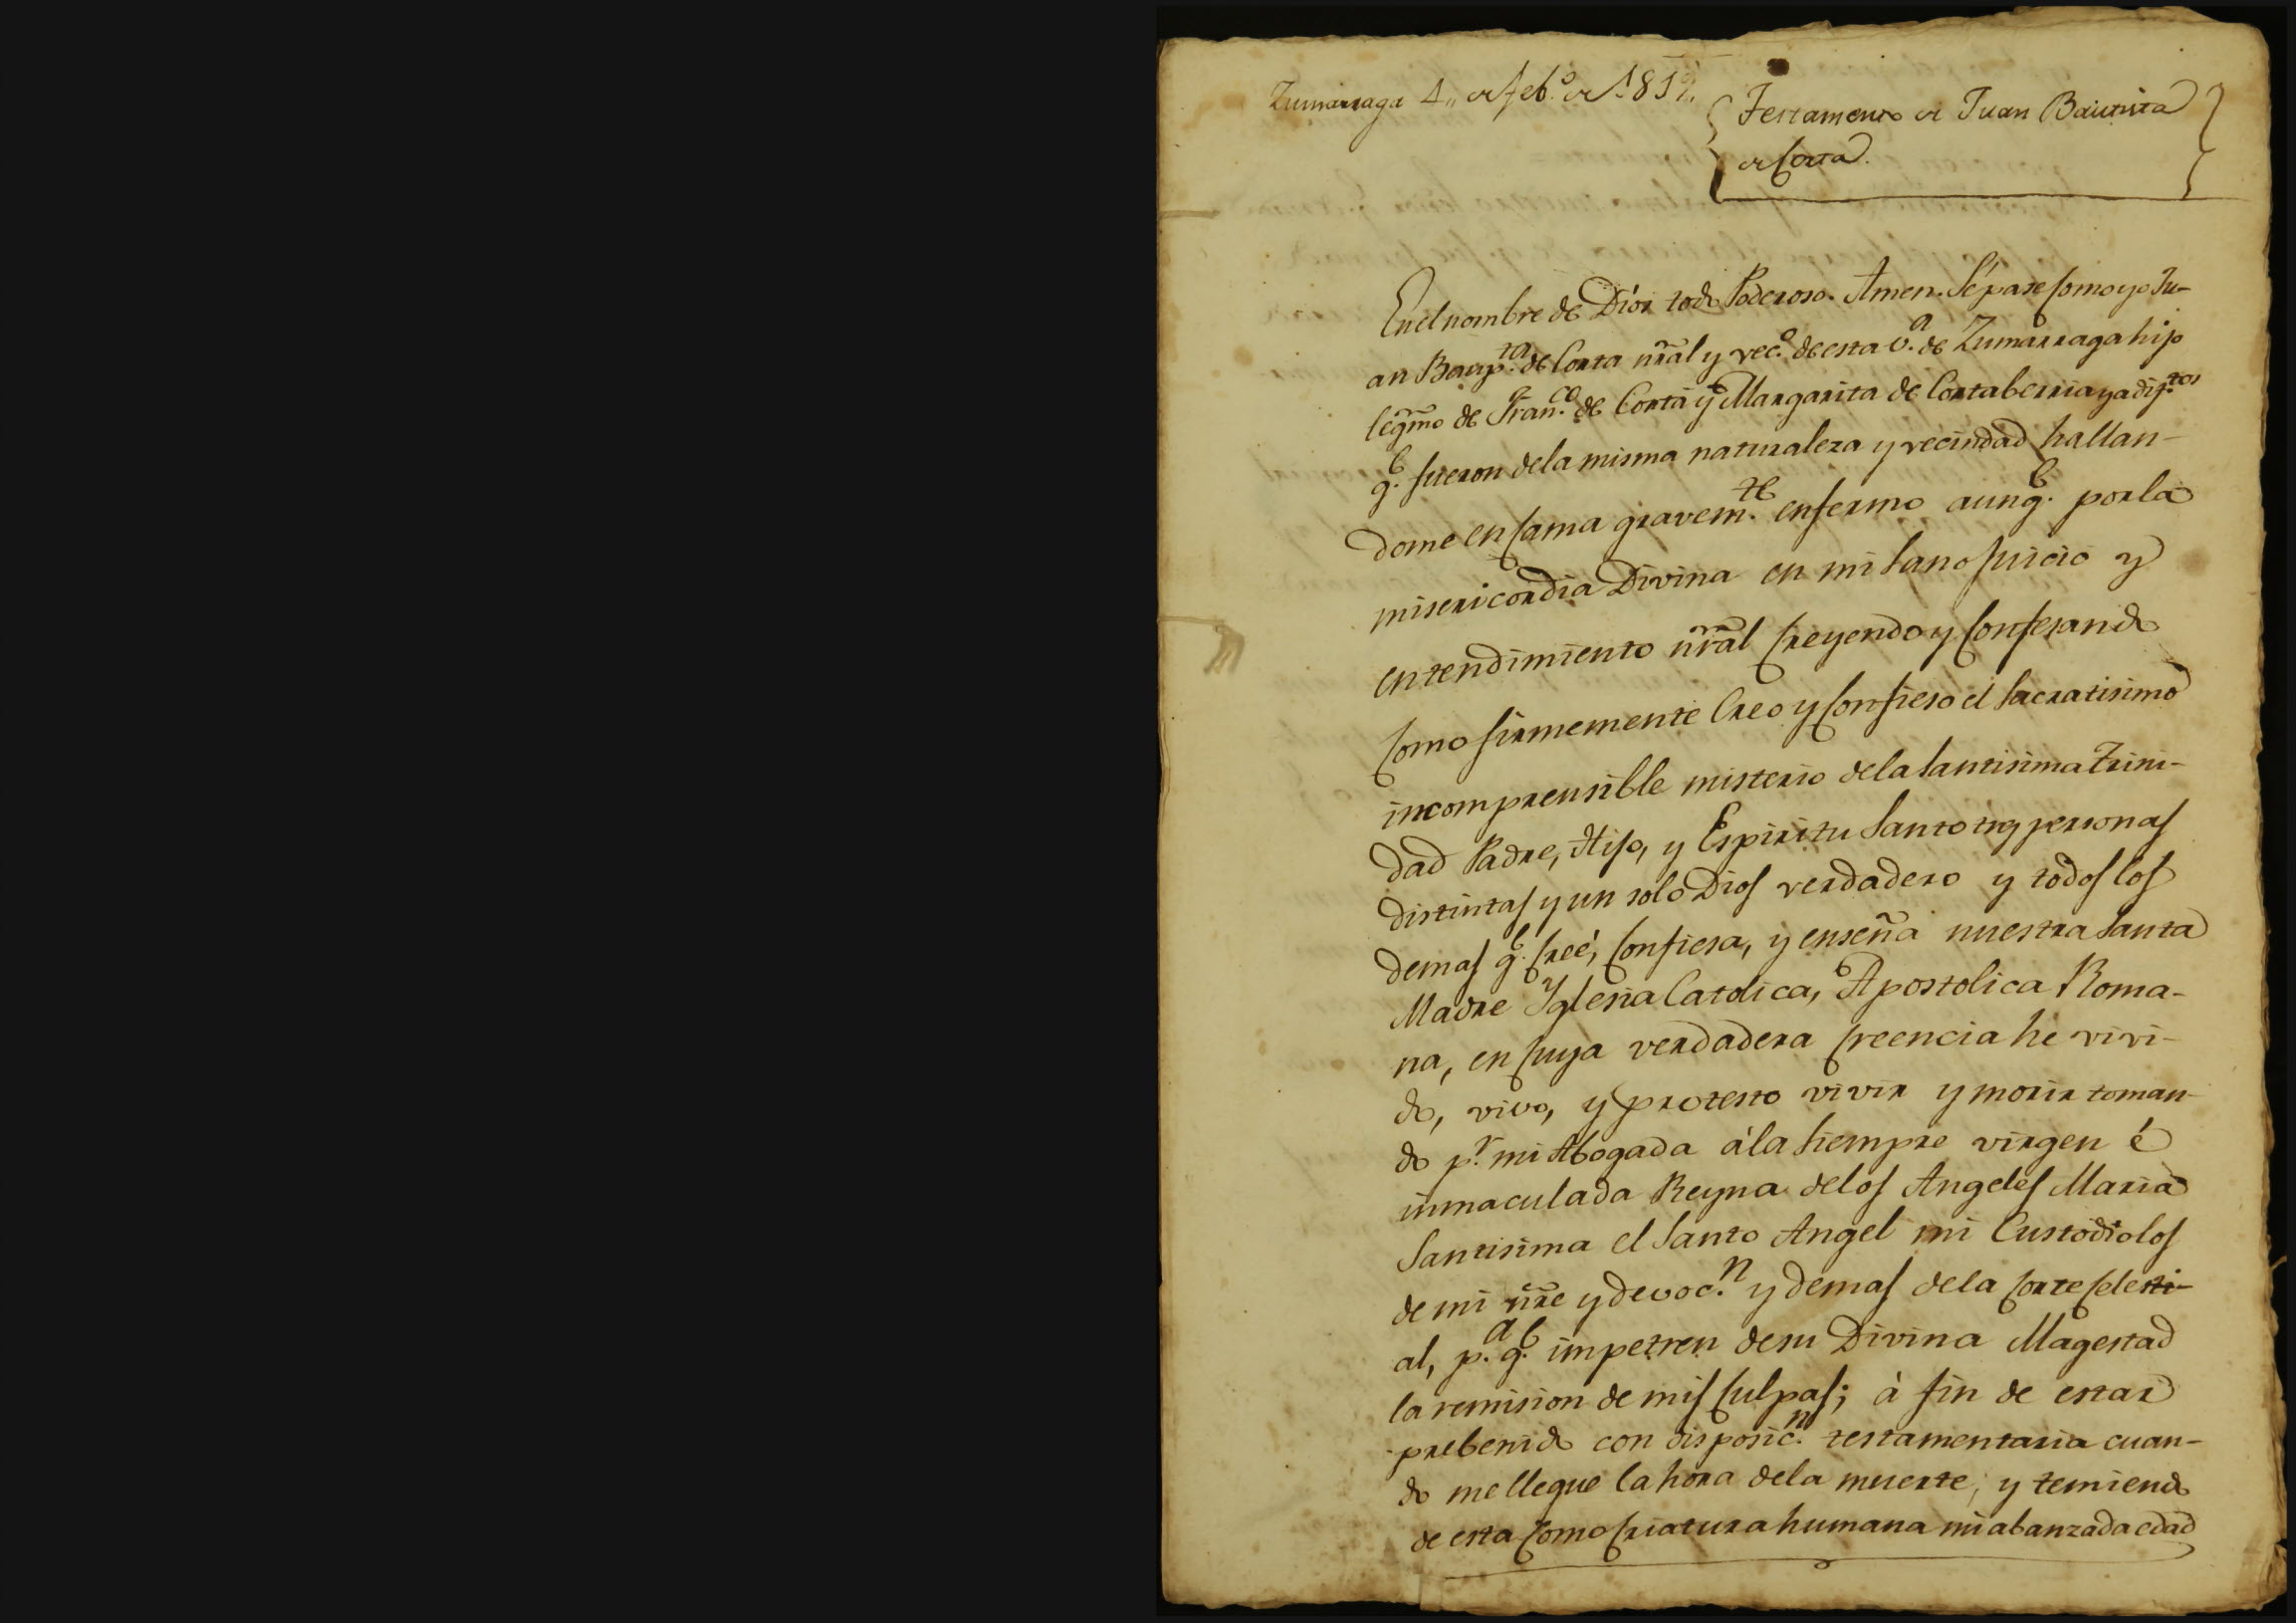 Zumarraga 4,, de feb.º de 181
Testamento de Juan Bautista
de Corta.
En el nombre de Dios todo Poderoso. Amen. Sépase como yo Ju-
an Baup.ta de Corta nr̃al y vec.º de esta v.a de Zumarraga hijo
legm̃o de Fran.co de Corta y Margarita de Cortaberria ya dif.tos
q.e fueron dela misma naturaleza y vecindad hallan-
dome en cama gravem.te enfermo aunq.e por la
misericordia Divina en mi sano juicio y
entendimiento nr̃al creyendo y confesando
como firmemente Creo y confieso el sacratisimo
incomprensible misterio dela santisima Trini-
dad Padre, Hijo, y Espiritu Santo tres personas
distintas y un solo Dios verdadero y todos los
demas q.e creé, confiesa, y enseña nuestra Santa
Madre Yglesia Catolica, Apostolica Roma-
na, en cuya verdadera creencia he vivi-
do, vivo, y protesto vivir y morir toman-
do p.r mi Abogada á la siempre virgen é
inmaculada Reyna delos Angeles Maria
Santisima el Santo Angel mi Custodio los
de mi nr̃e y devoc.n y demas dela corte celesti-
al, p.a q.e impetren de su Divina Magestad
la remision de mis culpas; à fin de estar
prebenido con disposic.n testamentaria cuan-
do me llegue la hora dela muerte, y temiendo
de esta como criatura humana mi abanzada edad